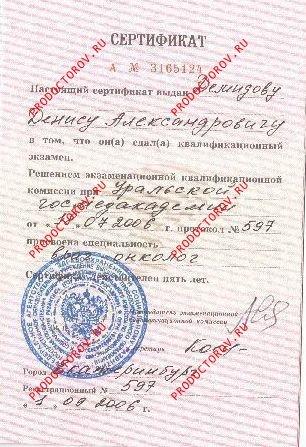 СЕРТИФИКАТ
А № 3165124
Настоящий сертификат выдан Демидову
Денису Александровичу
в том, что он(а) сдал(а) квалификационный
экзамен.
Решением экзаменационной квалификационной
комиссии при Уральской
госмедакадемии
от « » 07.2006 г. протокол № 597
присвоена специальность
врач онколог
Сертификат действителен пять лет.
Председатель экзаменационной
квалификационной комиссии
Секретарь
Город Екатеринбург
Регистрационный № 597
« 1 » 09 2006 г.
PRODOCTOROV.RU
PRODOCTOROV.RU
PRODOCTOROV.RU
PRODOCTOROV.RU
PRODOCTOROV.RU
PRODOCTOROV.RU